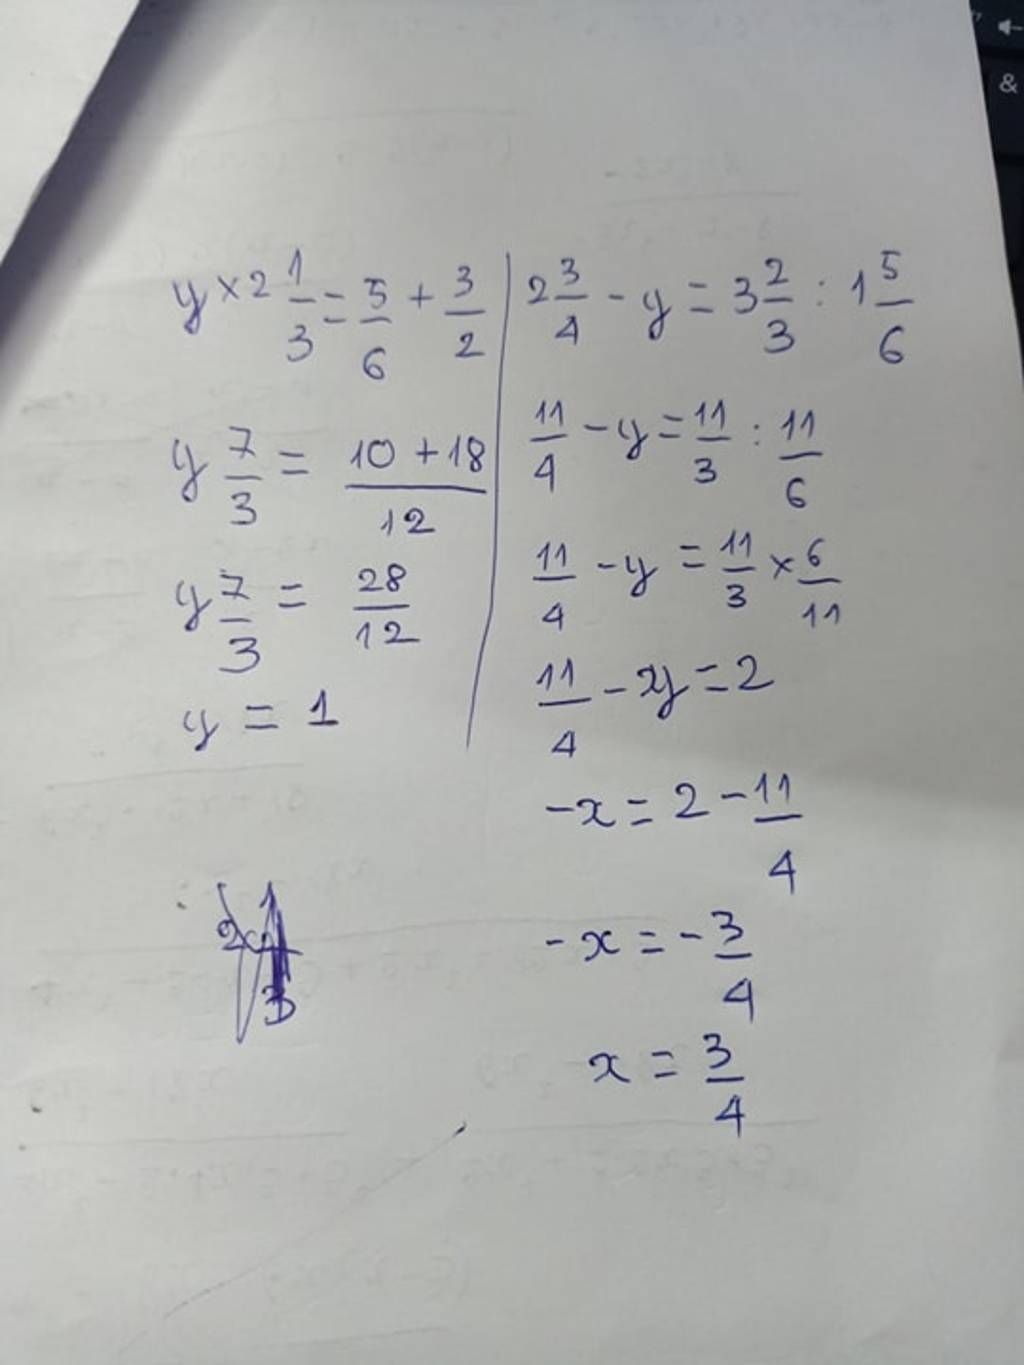 y × 2 1/3 = 5/6 + 3/2
y 7/3 = (10 + 18)/12
y 7/3 = 28/12
y = 1
2 3/4 - y = 3 2/3 : 1 5/6
11/4 - y = 11/3 : 11/6
11/4 - y = 11/3 × 6/11
11/4 - y = 2
-x = 2 - 11/4
-x = -3/4
x = 3/4
&